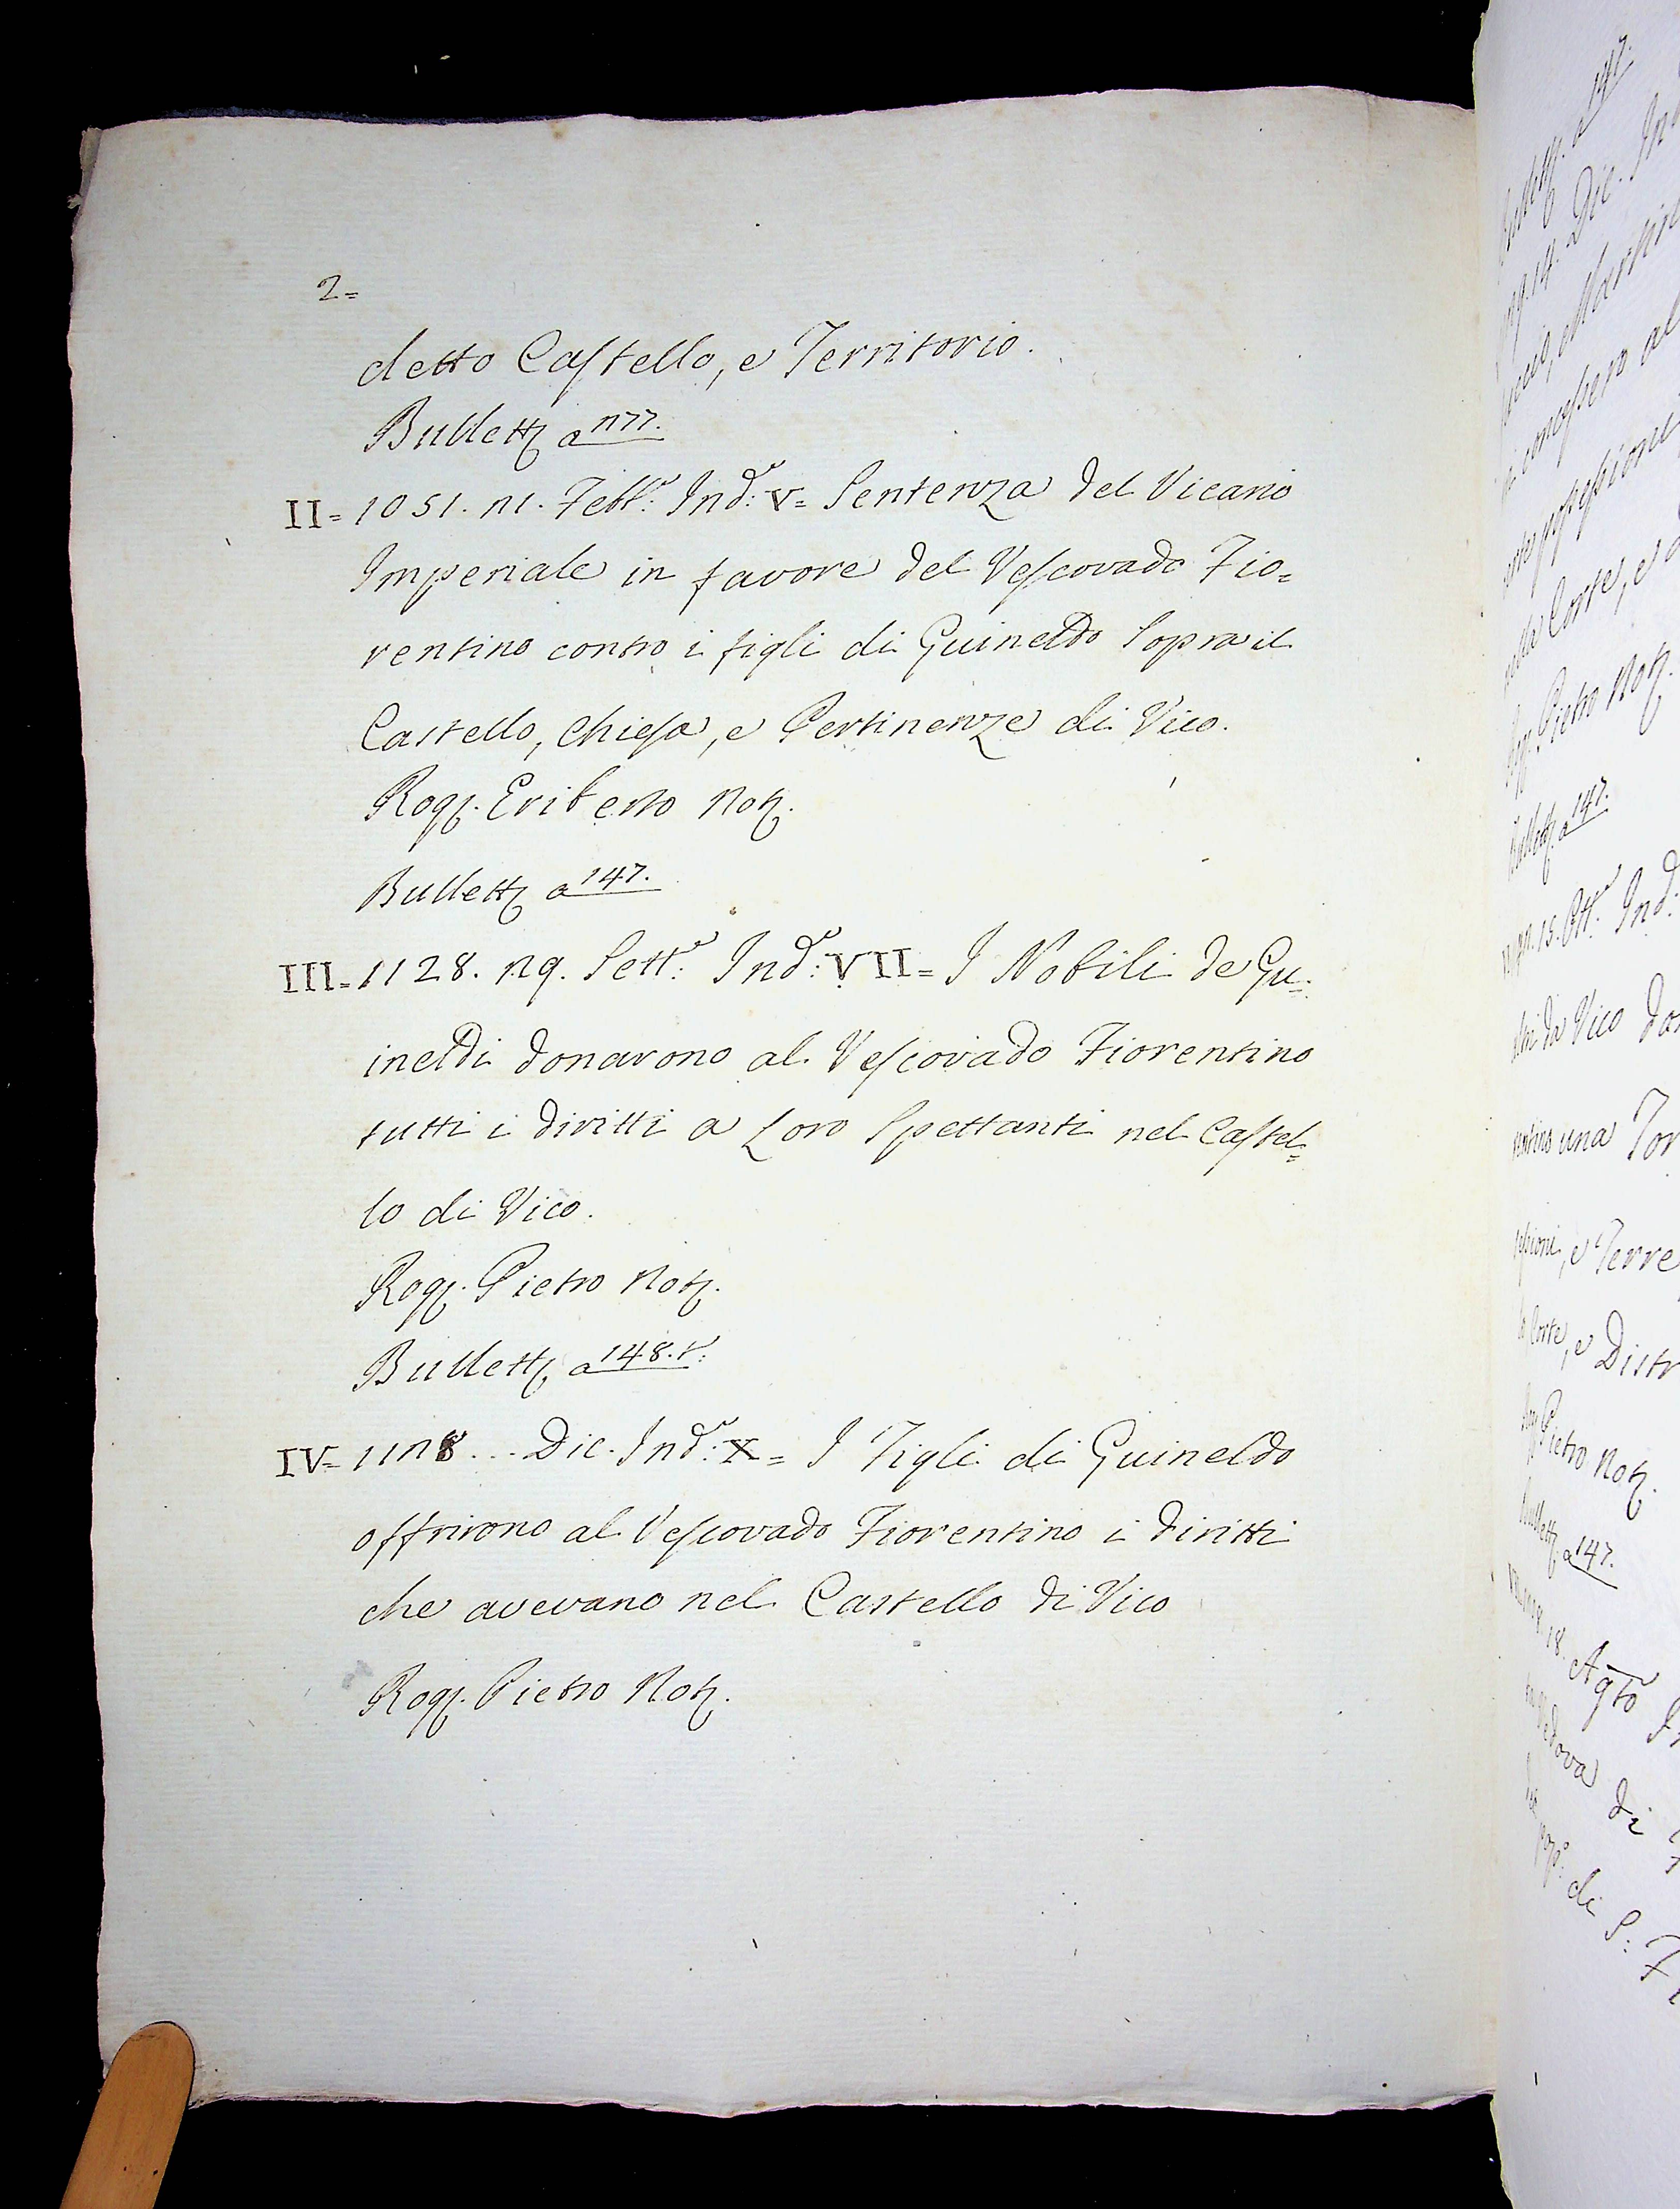 2=
detto Castello, e Territorio.
Bullett. a 277.
II= 1051. 21. Febb.° Ind.e: V= Sentenza del Vicario
Imperiale in favore del Vescovado Fio=
rentino contro i figli di Guineldo sopra il
Castello, Chiesa, e Pertinenze di Vico.
Rog. Eriberto Not.
Bullett. a 147.
III= 1128. 29. Sett.e: Ind.e: VII= I Nobili de Gu=
ineldi donarono al Vescovado Fiorentino
tutti i diritti a Loro Spettanti nel Castel=
lo di Vico.
Rog. Pietro Not.
Bullett. a 148. t:
IV= 1128... Dic. Ind.e: X= I Figli di Guineldo
offrirono al Vescovado Fiorentino i diritti
che avevano nel Castello di Vico
Rog. Pietro Not.
Bullett. a 147.
Dic.
concessero al
possessioni
Corte, e
Pietro Not.
Bullett. a 147.
15. Ott.e Ind.e:
da Vico
una Tor
e Terre
Corte, e Distr
Pietro Not.
Bullett. a 147.
18. Agto
di
di S: